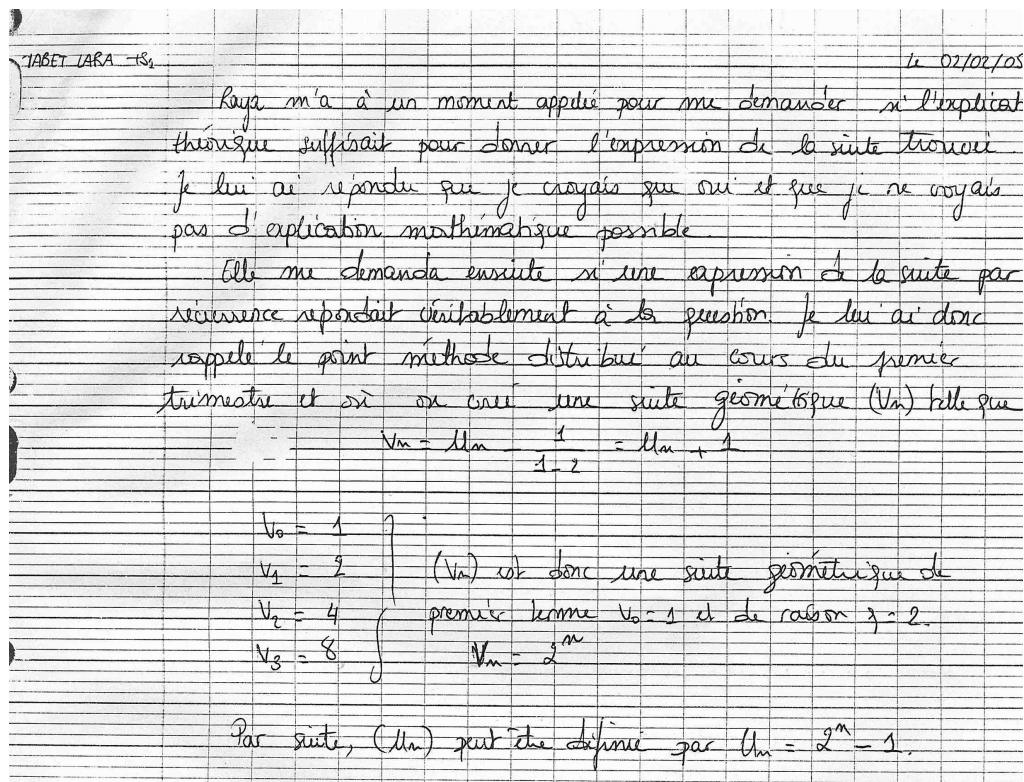 TABET LARA TS2 Le 02/02/05
Raya m'a à un moment appelée pour me demander si l'explicat
théorique suffisait pour donner l'expression de la suite trouvée
Je lui ai répondu que je croyais que oui et que je ne croyais
pas d'explication mathématique possible
Elle me demanda ensuite si une expression de la suite par
récurrence répondait véritablement à la question. Je lui ai donc
rappelé le point méthode distribué au cours du premier
trimestre et où on créé une suite géométrique (Vn) telle que
Vn = Un - 1/(1-2) = Un + 1
V0 = 1
V1 = 2 (Vn) est donc une suite géométrique de
V2 = 4 premier terme V0 = 1 et de raison q = 2.
V3 = 8 Vn = 2^n
Par suite, (Un) peut être définie par Un = 2^n - 1.